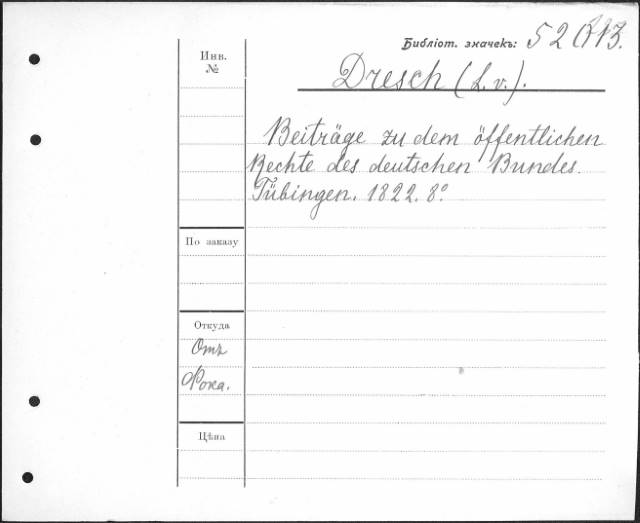 Библіот. значекъ: 52
Инв.
№
Dresch (L. v.).
Beiträge zu dem öffentlichen
Rechte des deutschen Bundes.
Tübingen. 1822. 8º.
По заказу
Откуда
Отъ
Фока.
Цѣна